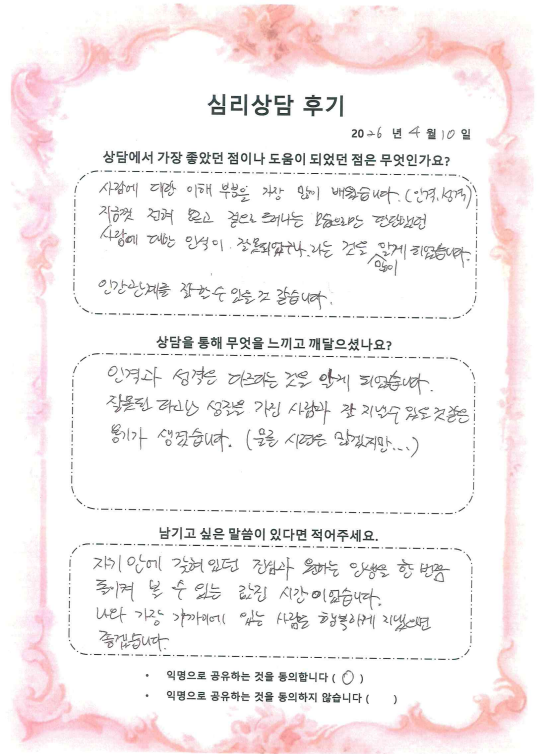 심리상담 후기
2026 년 4 월 10 일
상담에서 가장 좋았던 점이나 도움이 되었던 점은 무엇인가요?
사람에 대한 이해 부분을 가장 많이 배웠습니다. (인격, 성격)
지금껏 전혀 모르고 겉으로 드러나는 모습으로만 판단했던
사람에 대한 인식이 잘못되었구나. 라는 것을 많이 알게 되었습니다.
인간관계를 잘 할 수 있을 것 같습니다.
상담을 통해 무엇을 느끼고 깨달으셨나요?
인격과 성격은 다르다는 것을 알게 되었습니다.
잘못된 성격을 가진 사람과 잘 지낼 수 있을 것 같은
용기가 생겼습니다. (물론 시련은 많겠지만...)
남기고 싶은 말씀이 있다면 적어주세요.
자기 안에 갇혀 있던 진심과 원하는 인생을 한 번쯤
즐겨 볼 수 있는 값진 시간이었습니다.
나와 가장 가까이에 있는 사람을 행복하게 지냈으면
좋겠습니다.
• 익명으로 공유하는 것을 동의합니다 ( O )
• 익명으로 공유하는 것을 동의하지 않습니다 ( )